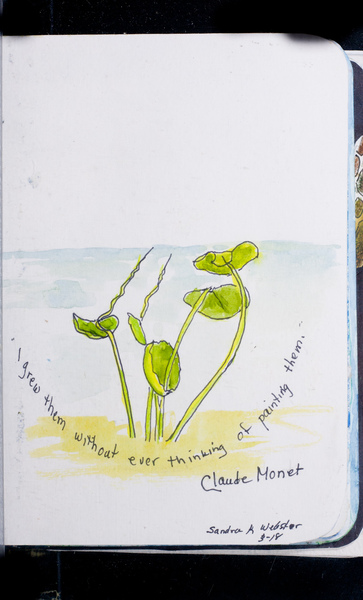 "I grew them without ever thinking of painting them."
Claude Monet
Sandra A Webster
9-18